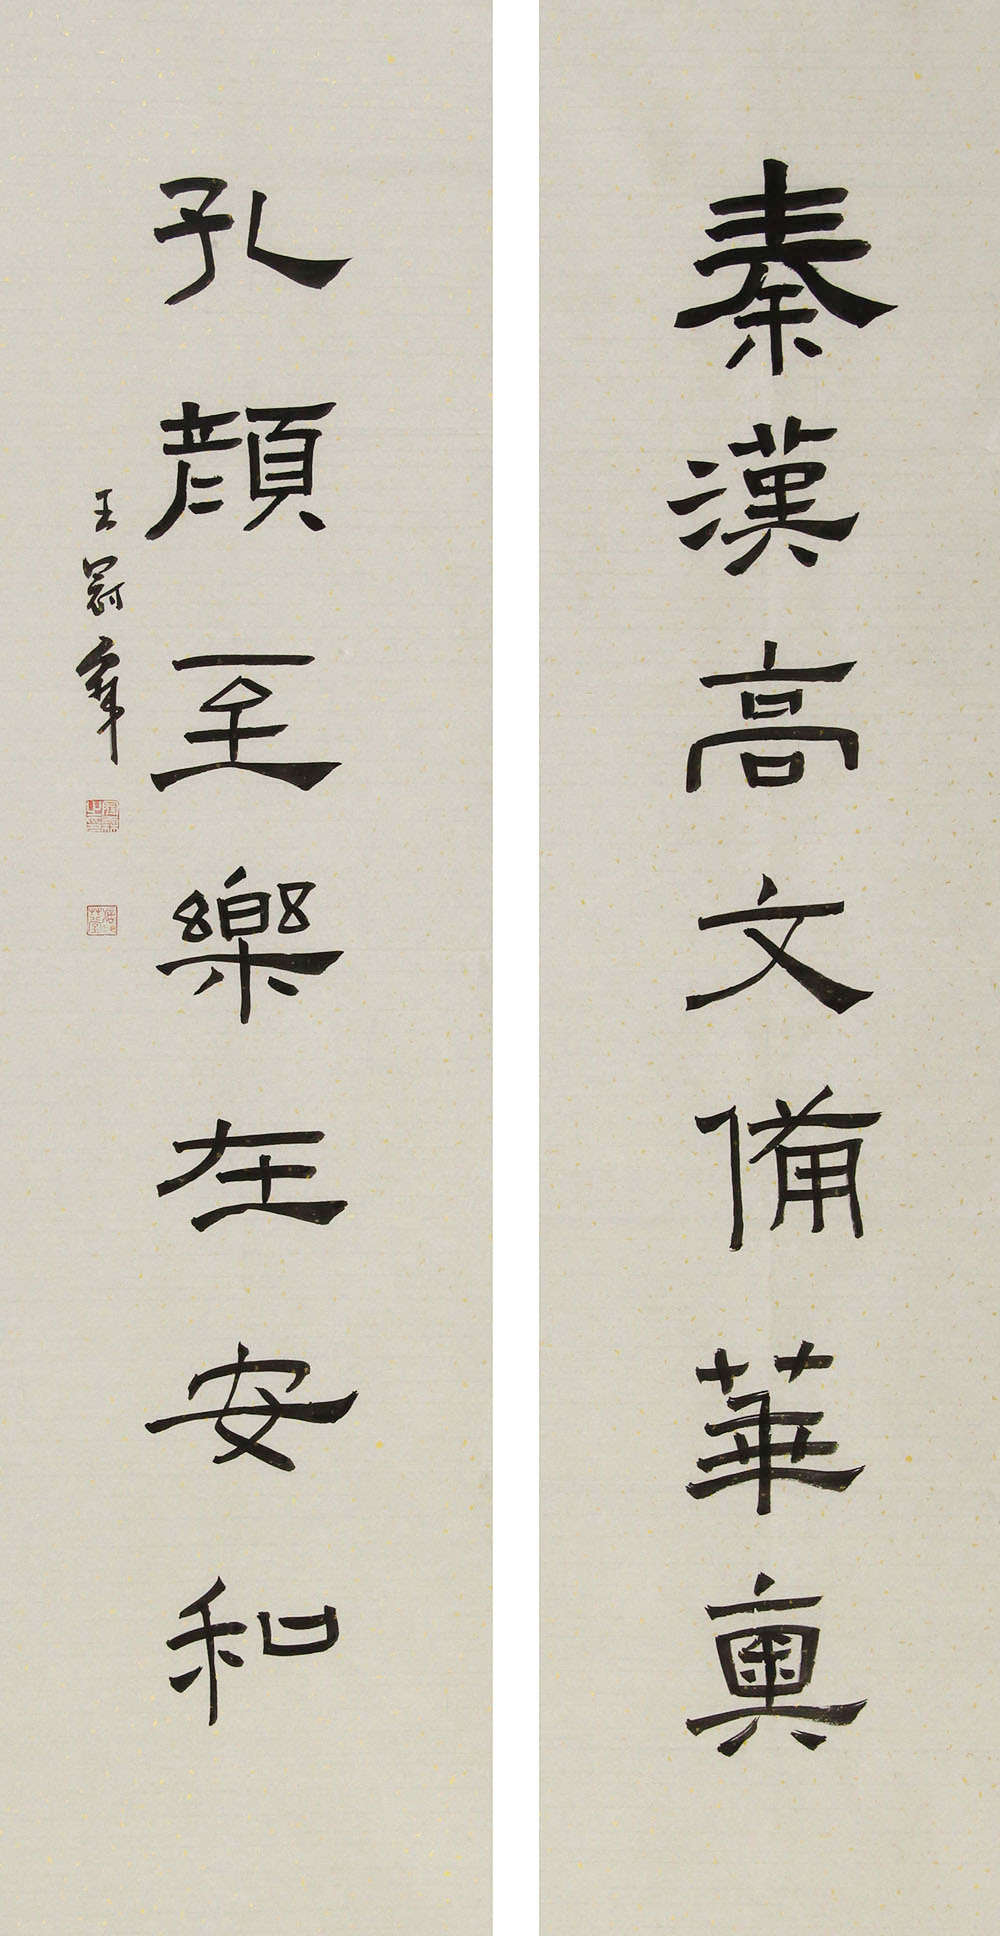 秦漢高文備華奧
孔顏至樂在安和
王羽軍